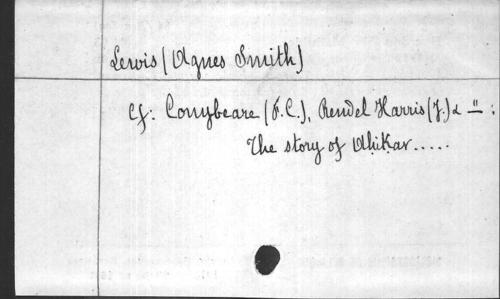 Lewis (Agnes Smith)
Cf: Conybeare (F.C.), Rendel Harris (J.) & — " :
The story of Aḥiḳar.....